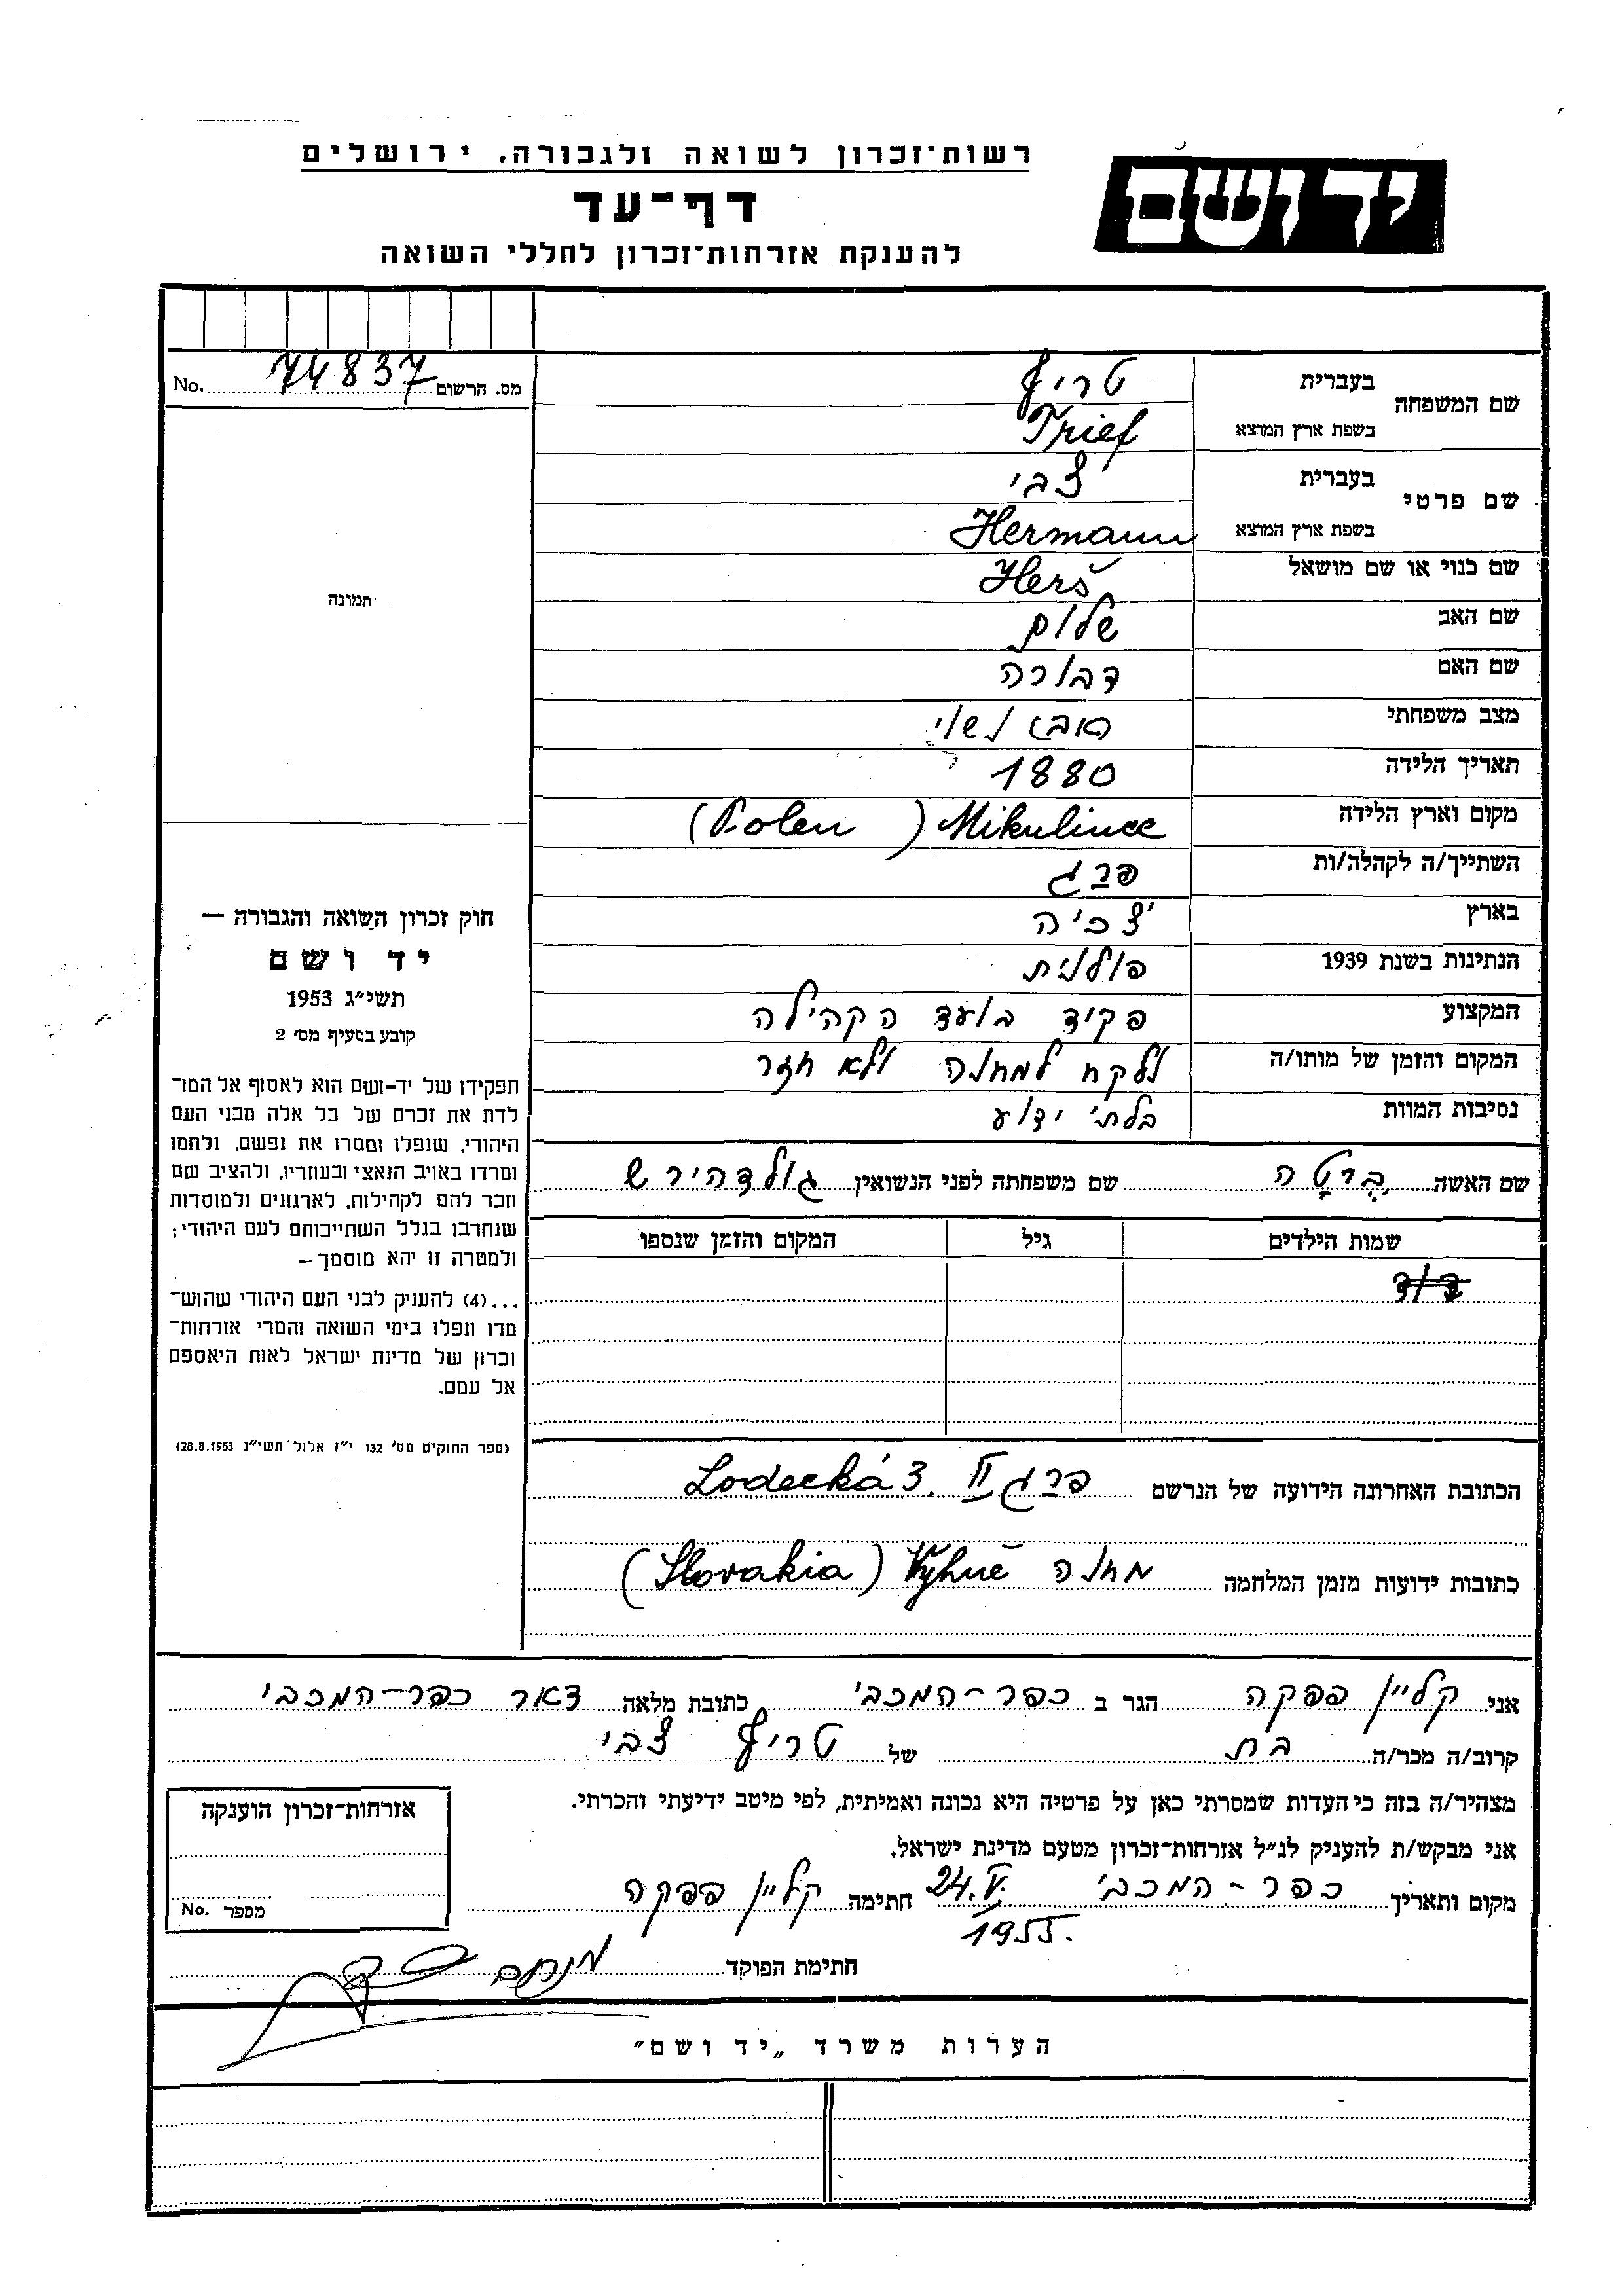 רשות־זכרון לשואה ולגבורה. ירושלים
יד ושם
דף־עד
להענקת אזרחות־זכרון לחללי השואה
מס. הרשום 74837 No.
שם המשפחה
בעברית טריף
בשפת ארץ המוצא Trief
שם פרטי
בעברית צבי
בשפת ארץ המוצא Hermann
שם כנוי או שם מושאל Herš
שם האב שלום
שם האם דבורה
מצב משפחתי (אב) נשוי
תאריך הלידה 1880
מקום וארץ הלידה Mikulince (Polen)
השתייך/ה לקהלה/ות פרג
בארץ צ'כיה
הנתינות בשנת 1939 פולנית
המקצוע פקיד בועד הקהילה
המקום והזמן של מותו/ה נלקח למחנה ולא חזר
נסיבות המוות בלתי ידוע
שם האשה ברטה שם משפחתה לפני הנשואין גולדהירש
שמות הילדים גיל המקום והזמן שנספו
דוד
הכתובת האחרונה הידועה של הנרשם פרג II Lodecká 3.
כתובות ידועות מזמן המלחמה מחנה Vyhně (Slovakia)
תמונה
חוק זכרון השואה והגבורה —
יד ושם
תשי״ג 1953
קובע בסעיף מס׳ 2
תפקידו של יד-ושם הוא לאסוף אל המו־
לדת את זכרם של כל אלה מבני העם
היהודי, שנפלו ומסרו את נפשם, נלחמו
ומרדו באויב הנאצי ובעוזריו, ולהציב שם
וזכר להם לקהילות, לארגונים ולמוסדות
שנחרבו בגלל השתייכותם לעם היהודי;
ולמטרה זו יהא מוסמך —
...(4) להעניק לבני העם היהודי שהוש־
מדו ונפלו בימי השואה והמרי אזרחות־
זכרון של מדינת ישראל לאות היאספם
אל עמם.
(ספר החוקים מס׳ 132 י״ז אלול תשי״ג 28.8.1953)
אני קליין פפקה הגר ב כפר-המכבי כתובת מלאה דאר כפר-המכבי
קרוב/ה מכר/ה בת של טריף צבי
מצהיר/ה בזה כי העדות שמסרתי כאן על פרטיה היא נכונה ואמיתית, לפי מיטב ידיעתי והכרתי.
אני מבקש/ת להעניק לנ״ל אזרחות־זכרון מטעם מדינת ישראל.
מקום ותאריך כפר-המכבי 24.V. 1955. חתימה קליין פפקה
חתימת הפוקד מנחם
אזרחות־זכרון הוענקה
מספר No.
הערות משרד „יד ושם״